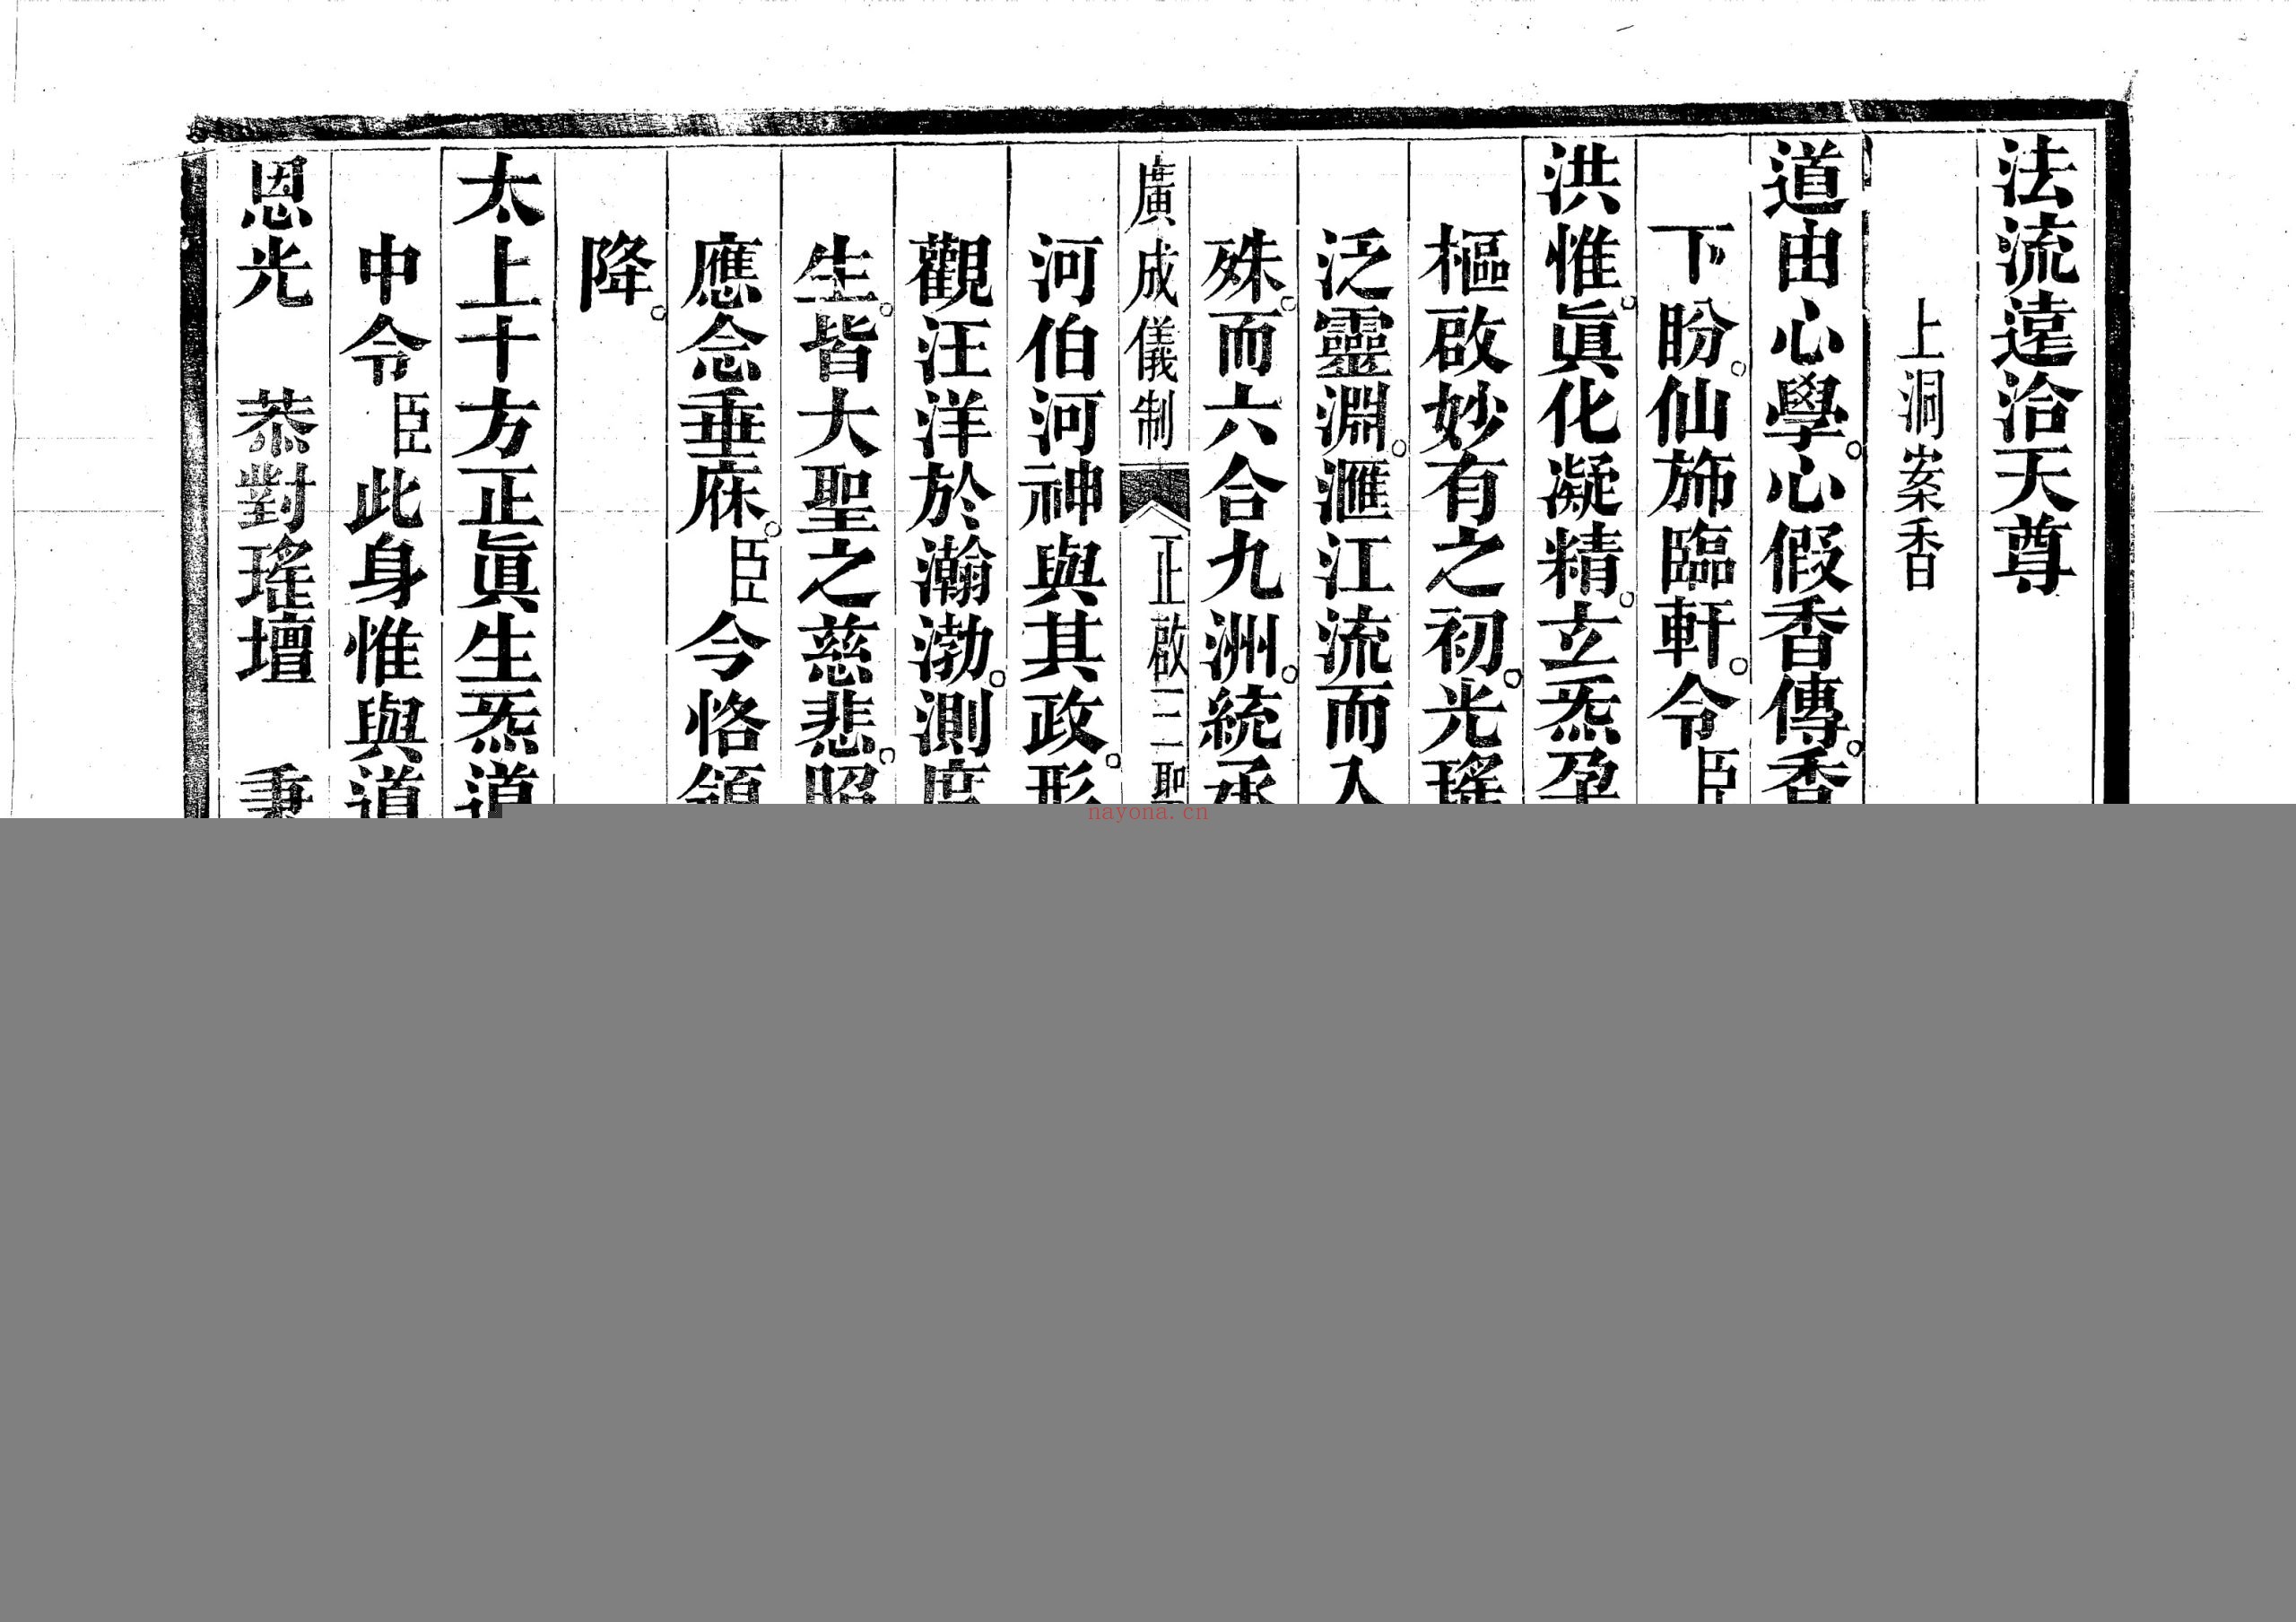 法流遠洽天尊
上洞案香
道由心學。心假香傳。香
下盼。仙斾臨軒。令臣
洪惟。眞化凝精。玄炁孕
樞啟妙有之初。光瑤
泛靈淵。滙江流而入
殊。而六合九洲。統承
廣成儀制 正啟三聖
河伯河神與其政。形
觀汪洋於瀚渤。測度
生。皆大聖之慈悲。昭
應念垂庥。臣今恪領
降。
太上十方正眞生炁道
中令臣此身惟與道
恩光 恭對瑤壇 秉
nayona.cn